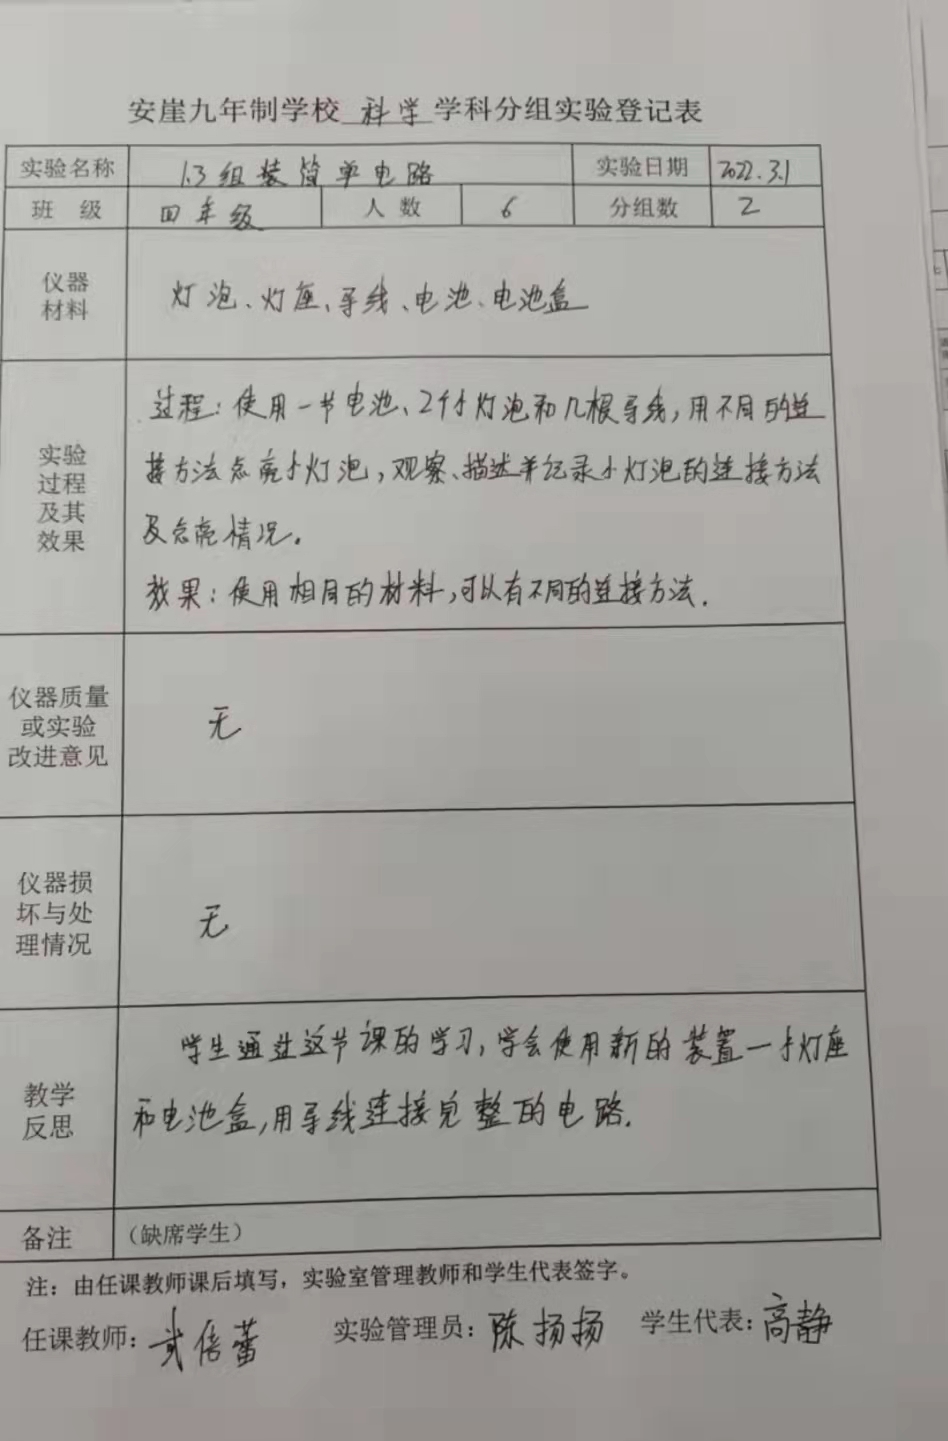 安崖九年制学校 科学 学科分组实验登记表
实验名称 1.3组装简单电路 实验日期 2022.3.1
班 级 四年级 人 数 6 分组数 2
仪器
材料
灯泡、灯座、导线、电池、电池盒
实验
过程
及其
效果
过程：使用一节电池、2个小灯泡和几根导线，用不同的连
接方法点亮小灯泡，观察、描述并记录小灯泡的连接方法
及点亮情况。
效果：使用相同的材料，可以有不同的连接方法.
仪器质量
或实验
改进意见
无
仪器损
坏与处
理情况
无
教学
反思
学生通过这节课的学习，学会使用新的装置一小灯座
和电池盒，用导线连接完整的电路.
备注 （缺席学生）
注：由任课教师课后填写，实验室管理教师和学生代表签字。
任课教师： 实验管理员：陈扬扬 学生代表：高静